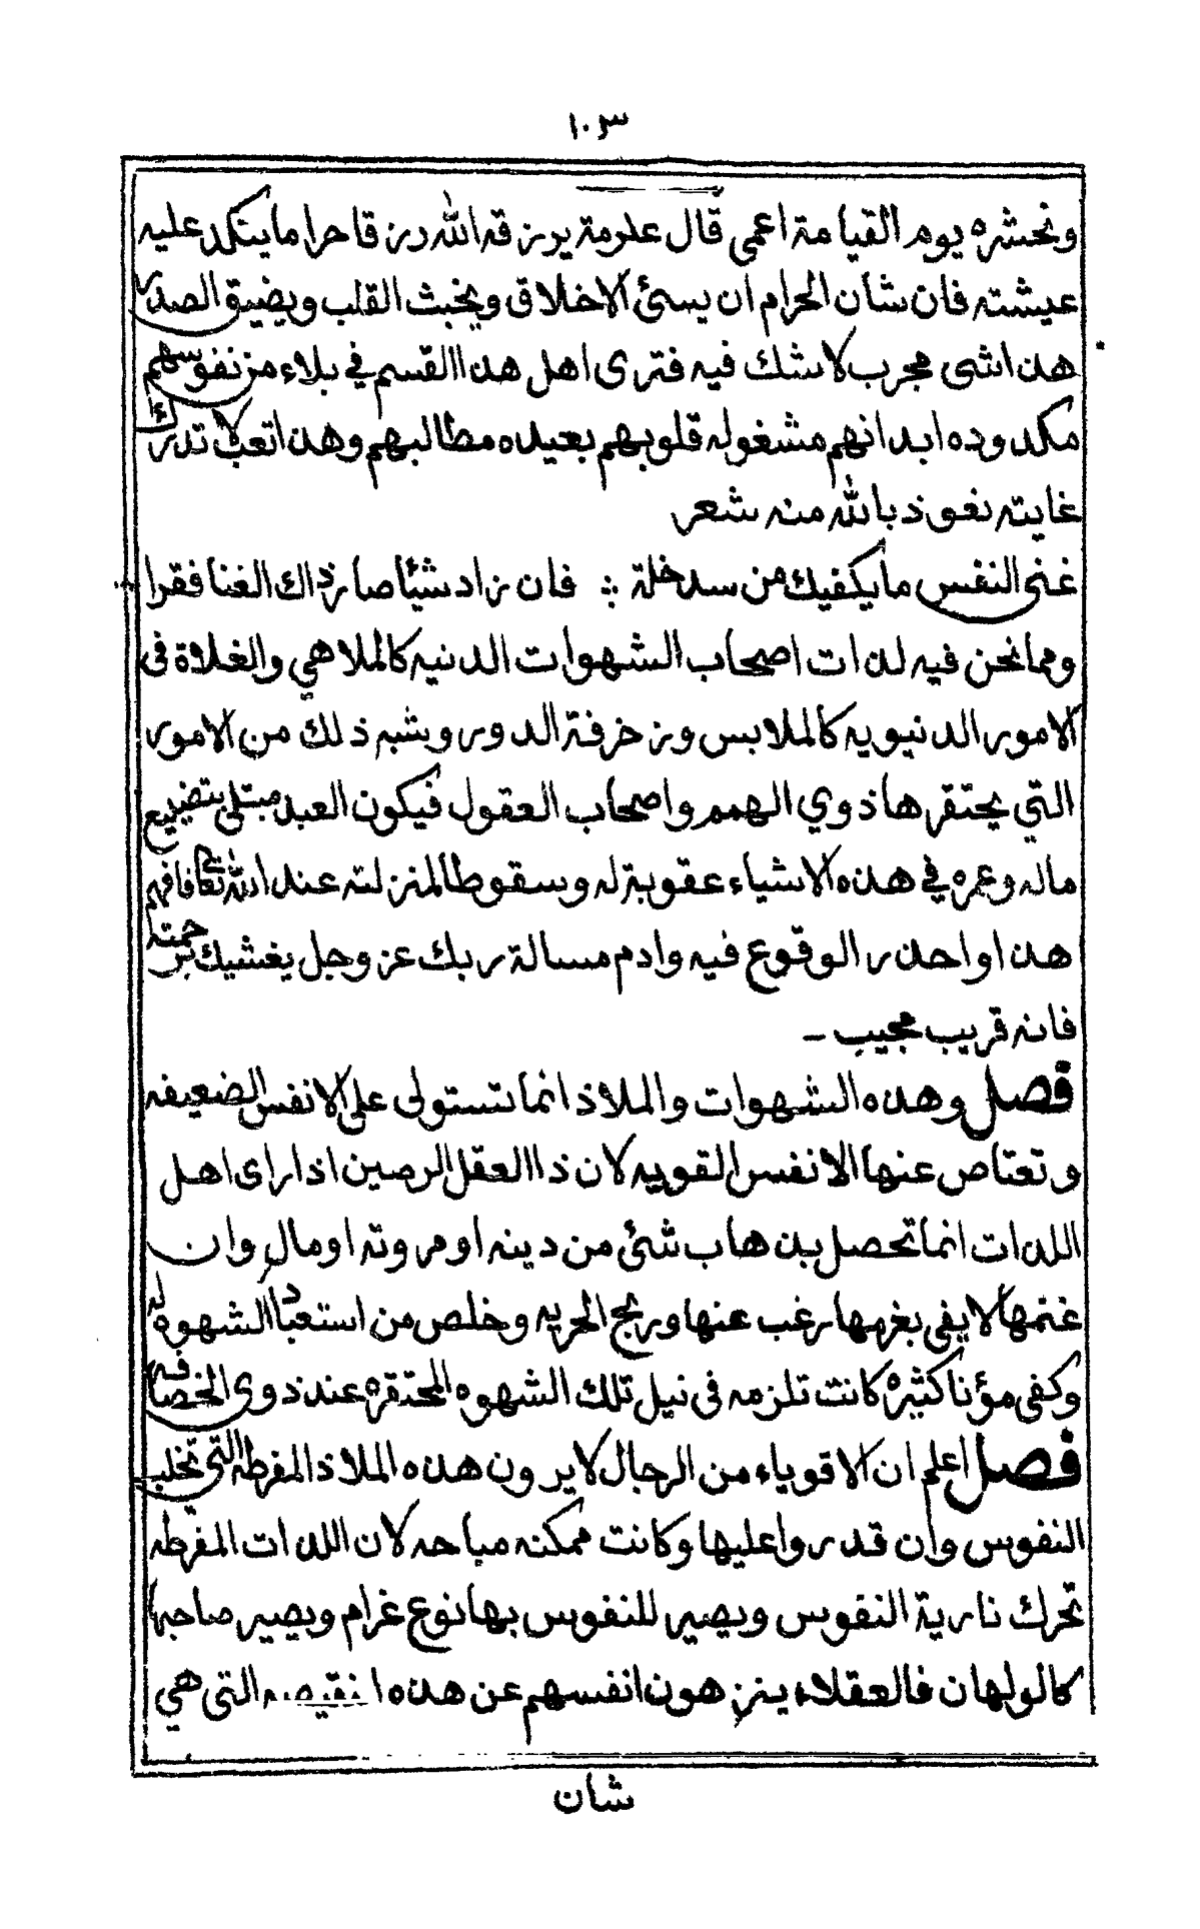 ١٠٣
ونحشره يوم القيامة اعمى قال عكرمة يرزقه الله رزقا حراما يتكدر عليه
عيشته فان شان الحرام ان يسئ الاخلاق ويخبث القلب ويضيق الصدر
هذا شى مجرب لاشك فيه فترى اهل هذا القسم في بلاء من نفوسهم
مكدوده ابدانهم مشغوله قلوبهم بعيده مطالبهم وهذا تعب لا تدرك
غايته نعوذ بالله منه شعر
غنى النفس ما يكفيك من سد خلة ؛ فان زاد شيئا صار ذاك الغنا فقرا
ومما نحن فيه لذات اصحاب الشهوات الدنيه كالملاهي والغلاة فى
الامور الدنيويه كالملابس وزخرفة الدور وشبه ذلك من الامور
التي يحتقرها ذوي الهمم واصحاب العقول فيكون العبد مبتلى بتضييع
ماله وعمره في هذه الاشياء عقوبة له وسقوطا لمنزلته عند الله تعالى فافهم
هذا واحذر الوقوع فيه وادم مسالة ربك عز وجل يغشيك برحمته
فانه قريب مجيب -
فصل وهذه الشهوات والملاذ انما تستولى على الانفس الضعيفه
وتعتاص عنها الانفس القويه لان ذا العقل الرصين اذا راى اهل
اللذات انما تحصل بذهاب شئ من دينه او مروته او مال وان
غنمها لا يفى بغرمها رغب عنها وربح الحريه وخلص من استعباد الشهوة له
وكفى مؤنا كثيره كانت تلزمه فى نيل تلك الشهوه المحتقره عند ذوى الخصافه
فصل اعلم ان الاقوياء من الرجال لايرون هذه الملاذ المفرطه التي تخلب
النفوس وان قدروا عليها وكانت ممكنه مباحه لان اللذات المفرطه
تحرك نارية النفوس ويصير للنفوس بها نوع غرام ويصير صاحبها
كالولهان فالعقلاء ينزهون انفسهم عن هذه النقيصه التى هي
شان